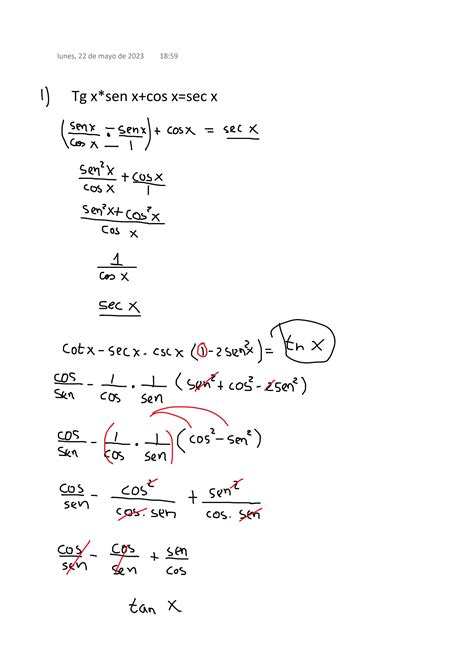 lunes, 22 de mayo de 2023 18:59
1) Tg x*sen x+cos x=sec x
(sen x/cos x · sen x/1) + cos x = sec x
sen²x/cos x + cos x/1
sen²x + cos²x/cos x
1/cos x
sec x
cotx - sec x · csc x (1 - 2 sen²x) = tn x
cos/sen - 1/cos · 1/sen (sen² + cos² - 2sen²)
cos/sen - (1/cos · 1/sen) (cos² - sen²)
cos/sen - cos²/cos. sen + sen²/cos. sen
cos/sen - cos/sen + sen/cos
tan x